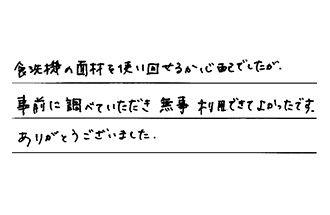 食洗機の面材を使い回せるか心配でしたが、
事前に調べていただき 無事 利用できてよかったです。
ありがとうございました。